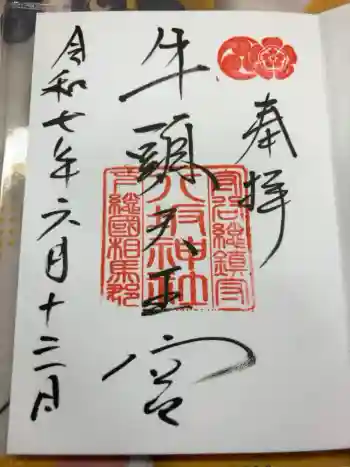 奉拝
牛頭天王宮
守谷総鎮守
八坂神社
下総國相馬郡
令和七年六月十二日